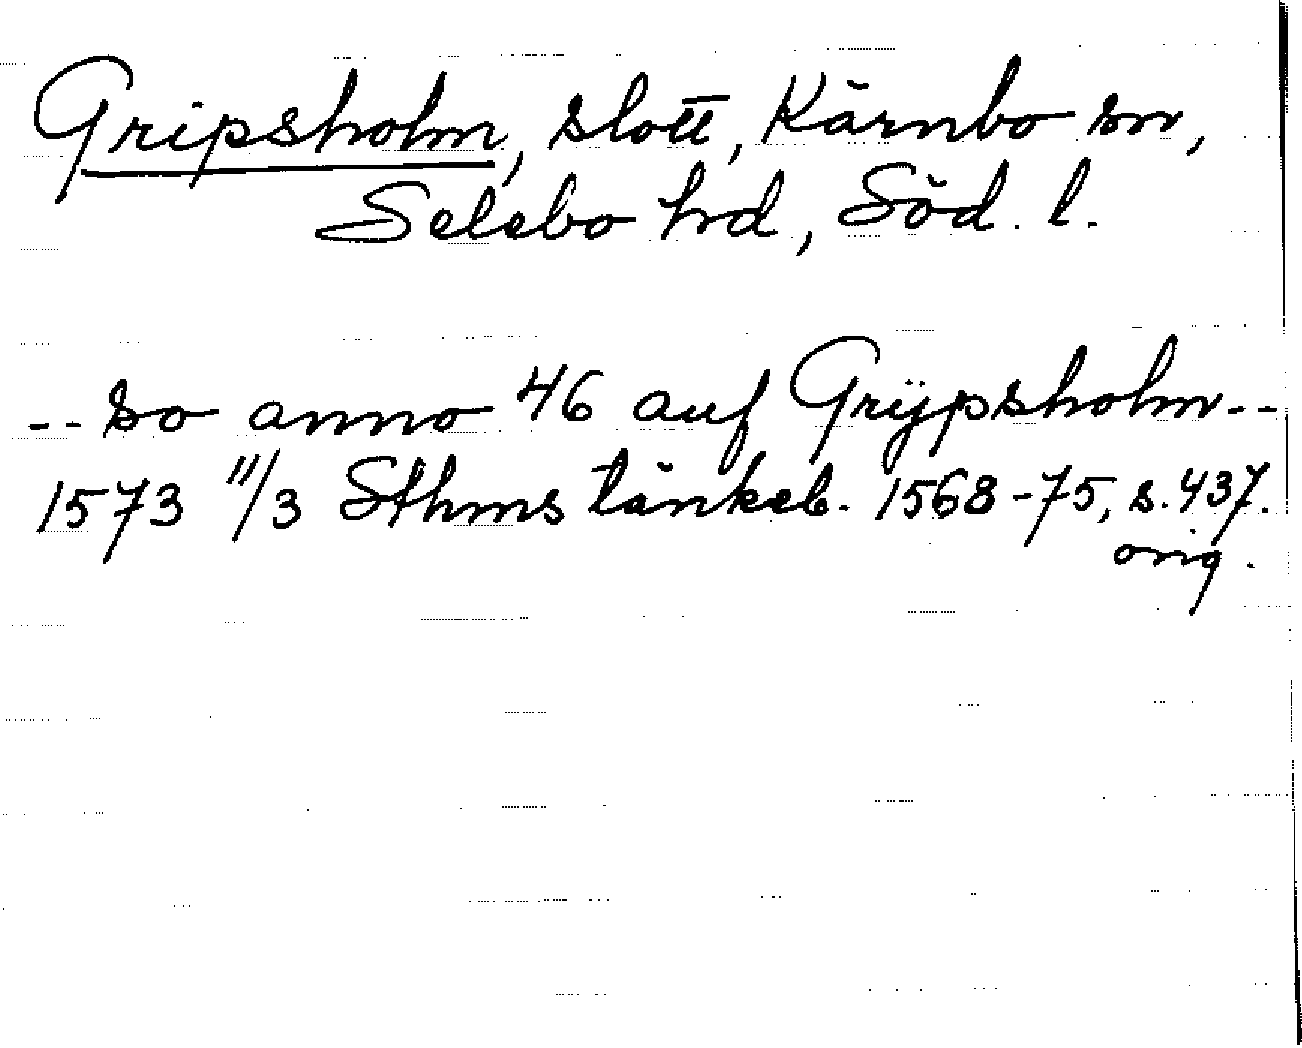 Gripsholm, slott, Kärnbo sn,
Selebo hd, Söd. l.
-- so anno 46 auf Grÿpsholm --
1573 11/3 Sthms tänkeb. 1568-75, s. 437.
orig.